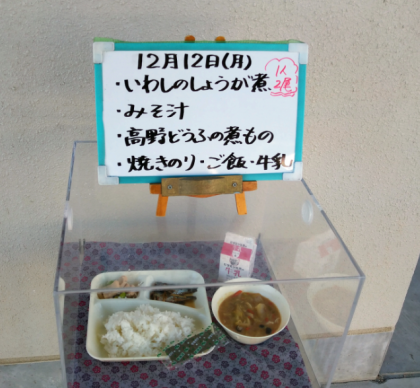 12月12日(月)
・いわしのしょうが煮
1人
2尾
・みそ汁
・高野どうふの煮もの
・焼きのり・ご飯・牛乳